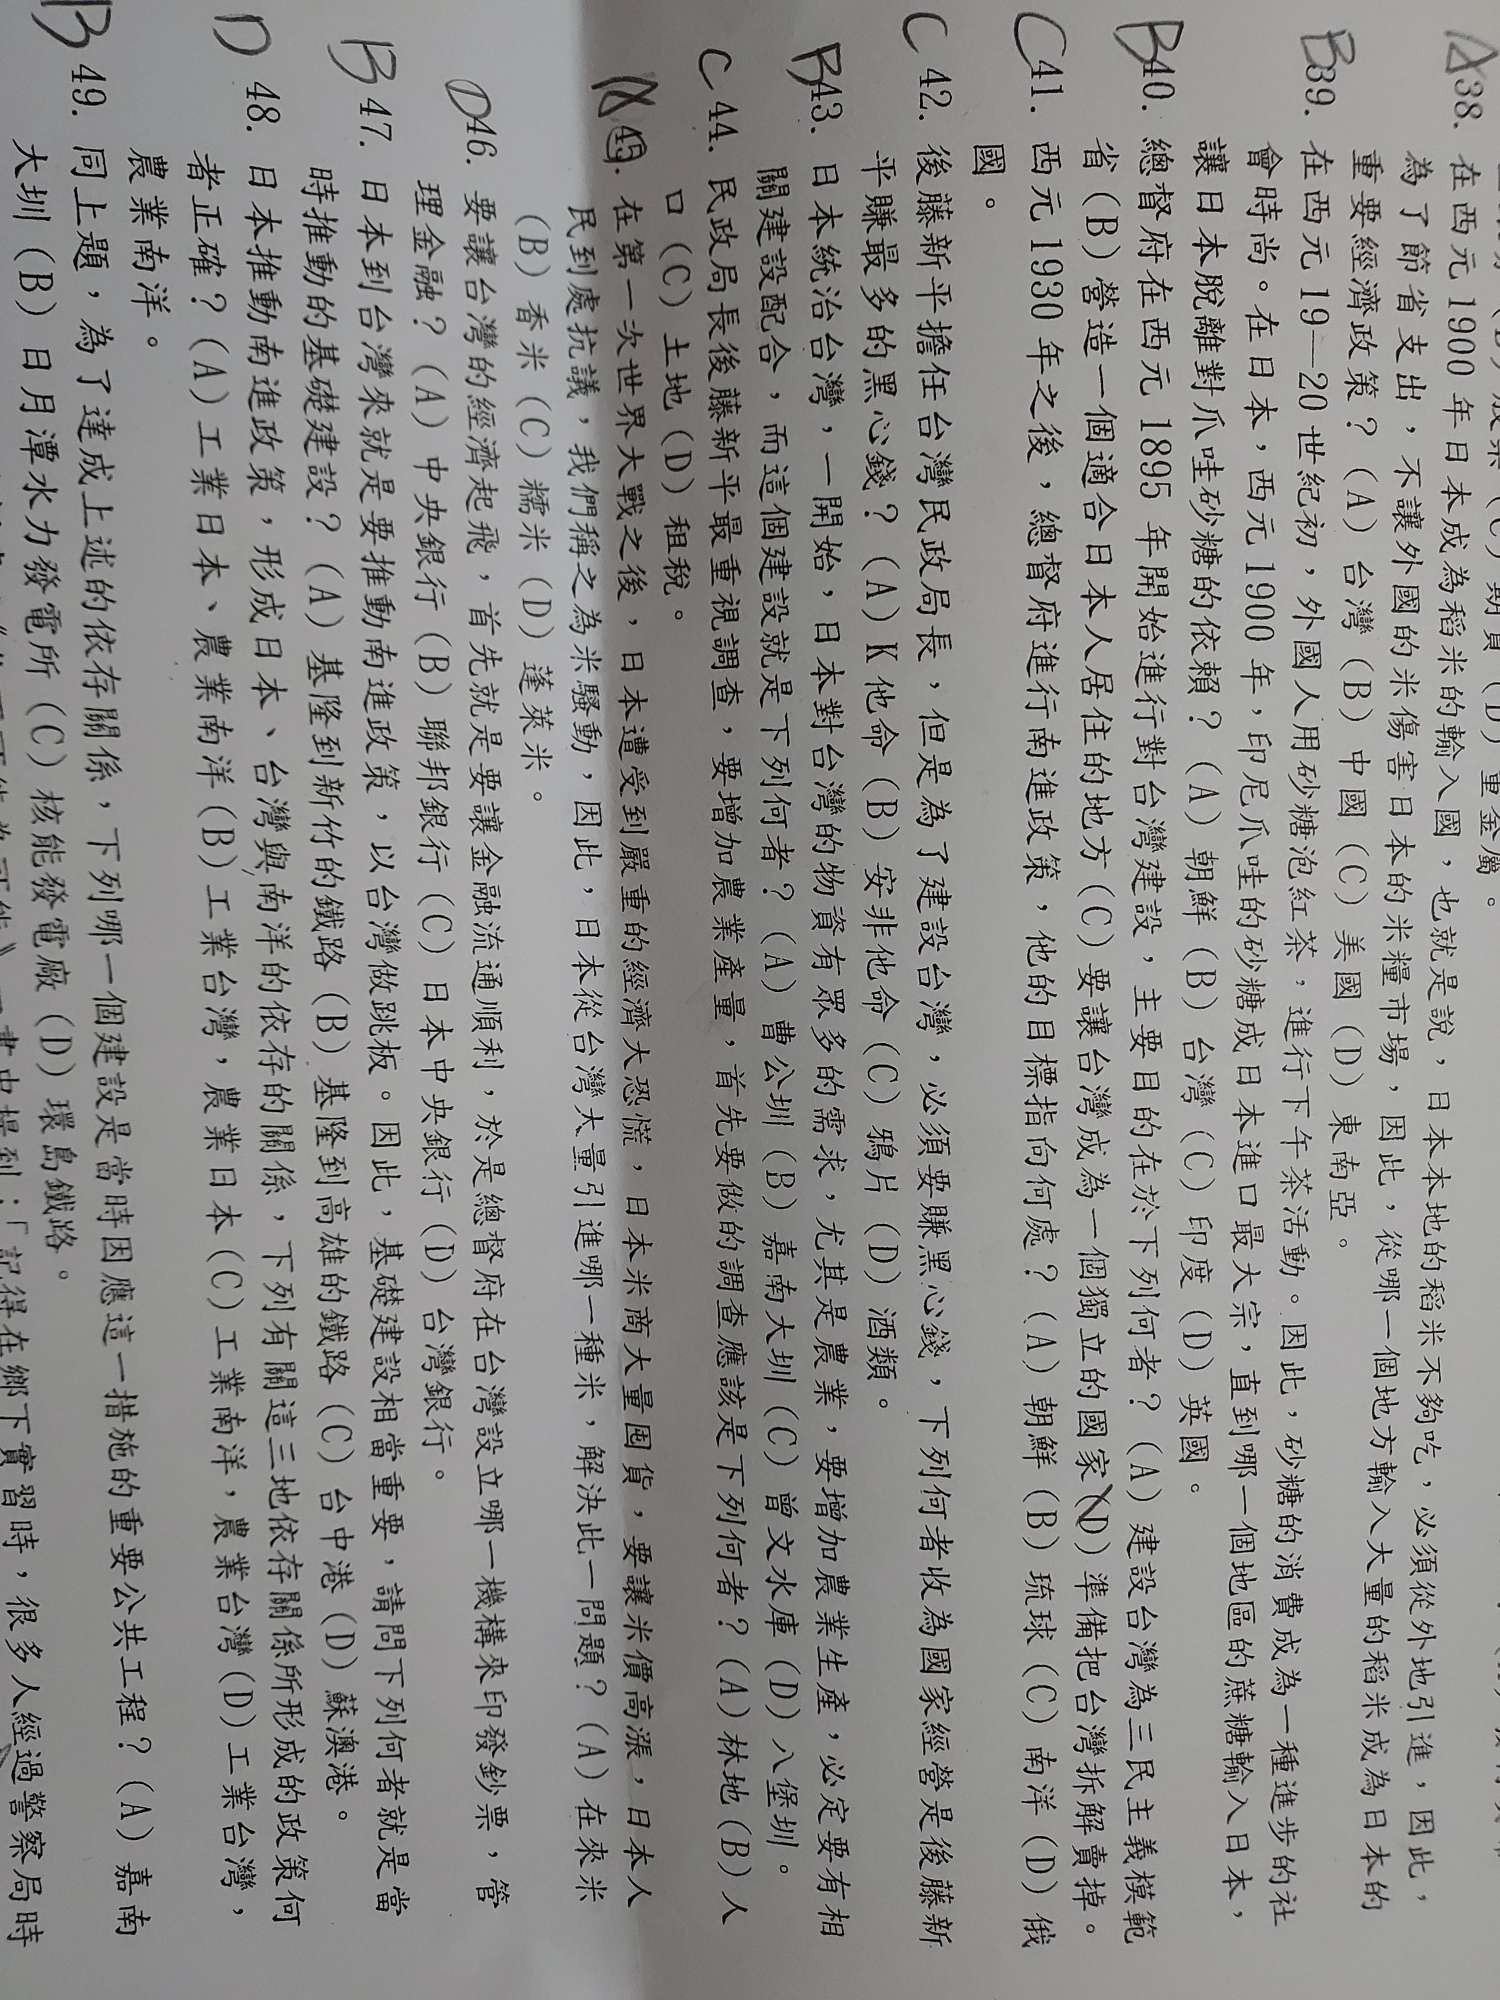 (D) 重金屬。
A 38. 在西元1900年日本成為稻米的輸入國，也就是說，日本本地的稻米不夠吃，必須從外地引進，因此，
為了節省支出，不讓外國的米傷害日本的米糧市場，因此，從哪一個地方輸入大量的稻米成為日本的
重要經濟政策？(A) 台灣 (B) 中國 (C) 美國 (D) 東南亞。
B 39. 在西元19—20世紀初，外國人用砂糖泡紅茶，進行下午茶活動。因此，砂糖的消費成為一種進步的社
會時尚。在日本，西元1900年，印尼爪哇的砂糖成日本進口最大宗，直到哪一個地區的蔗糖輸入日本，
讓日本脫離對爪哇砂糖的依賴？(A) 朝鮮 (B) 台灣 (C) 印度 (D) 英國。
B 40. 總督府在西元1895年開始進行對台灣建設，主要目的在於下列何者？(A) 建設台灣為三民主義模範
省 (B) 營造一個適合日本人居住的地方 (C) 要讓台灣成為一個獨立的國家 (D) 準備把台灣拆解賣掉。
C 41. 西元1930年之後，總督府進行南進政策，他的目標指向何處？(A) 朝鮮 (B) 琉球 (C) 南洋 (D) 俄
國。
C 42. 後藤新平擔任台灣民政局長，但是為了建設台灣，必須要賺黑心錢，下列何者收為國家經營是後藤新
平賺最多的黑心錢？(A) K他命 (B) 安非他命 (C) 鴉片 (D) 酒類。
B 43. 日本統治台灣，一開始，日本對台灣的物資有眾多的需求，尤其是農業，要增加農業生產，必定要有相
關建設配合，而這個建設就是下列何者？(A) 曹公圳 (B) 嘉南大圳 (C) 曾文水庫 (D) 八堡圳。
C 44. 民政局長後藤新平最重視調查，要增加農業產量，首先要做的調查應該是下列何者？(A) 林地 (B) 人
口 (C) 土地 (D) 租稅。
A 45. 在第一次世界大戰之後，日本遭受到嚴重的經濟大恐慌，日本米商大量囤貨，要讓米價高漲，日本人
民到處抗議，我們稱之為米騷動，因此，日本從台灣大量引進哪一種米，解決此一問題？(A) 在來米
(B) 香米 (C) 糯米 (D) 蓬萊米。
D 46. 要讓台灣的經濟起飛，首先就是要讓金融流通順利，於是總督府在台灣設立哪一機構來印發鈔票，管
理金融？(A) 中央銀行 (B) 聯邦銀行 (C) 日本中央銀行 (D) 台灣銀行。
B 47. 日本到台灣來就是要推動南進政策，以台灣做跳板。因此，基礎建設相當重要，請問下列何者就是當
時推動的基礎建設？(A) 基隆到新竹的鐵路 (B) 基隆到高雄的鐵路 (C) 台中港 (D) 蘇澳港。
D 48. 日本推動南進政策，形成日本、台灣與南洋的依存的關係，下列有關這三地依存關係所形成的政策何
者正確？(A) 工業日本、農業南洋 (B) 工業台灣，農業日本 (C) 工業南洋，農業台灣 (D) 工業台灣，
農業南洋。
B 49. 同上題，為了達成上述的依存關係，下列哪一個建設是當時因應這一措施的重要公共工程？(A) 嘉南
大圳 (B) 日月潭水力發電所 (C) 核能發電廠 (D) 環島鐵路。
書中提到：「記得在鄉下實習時，很多人經過警察局時